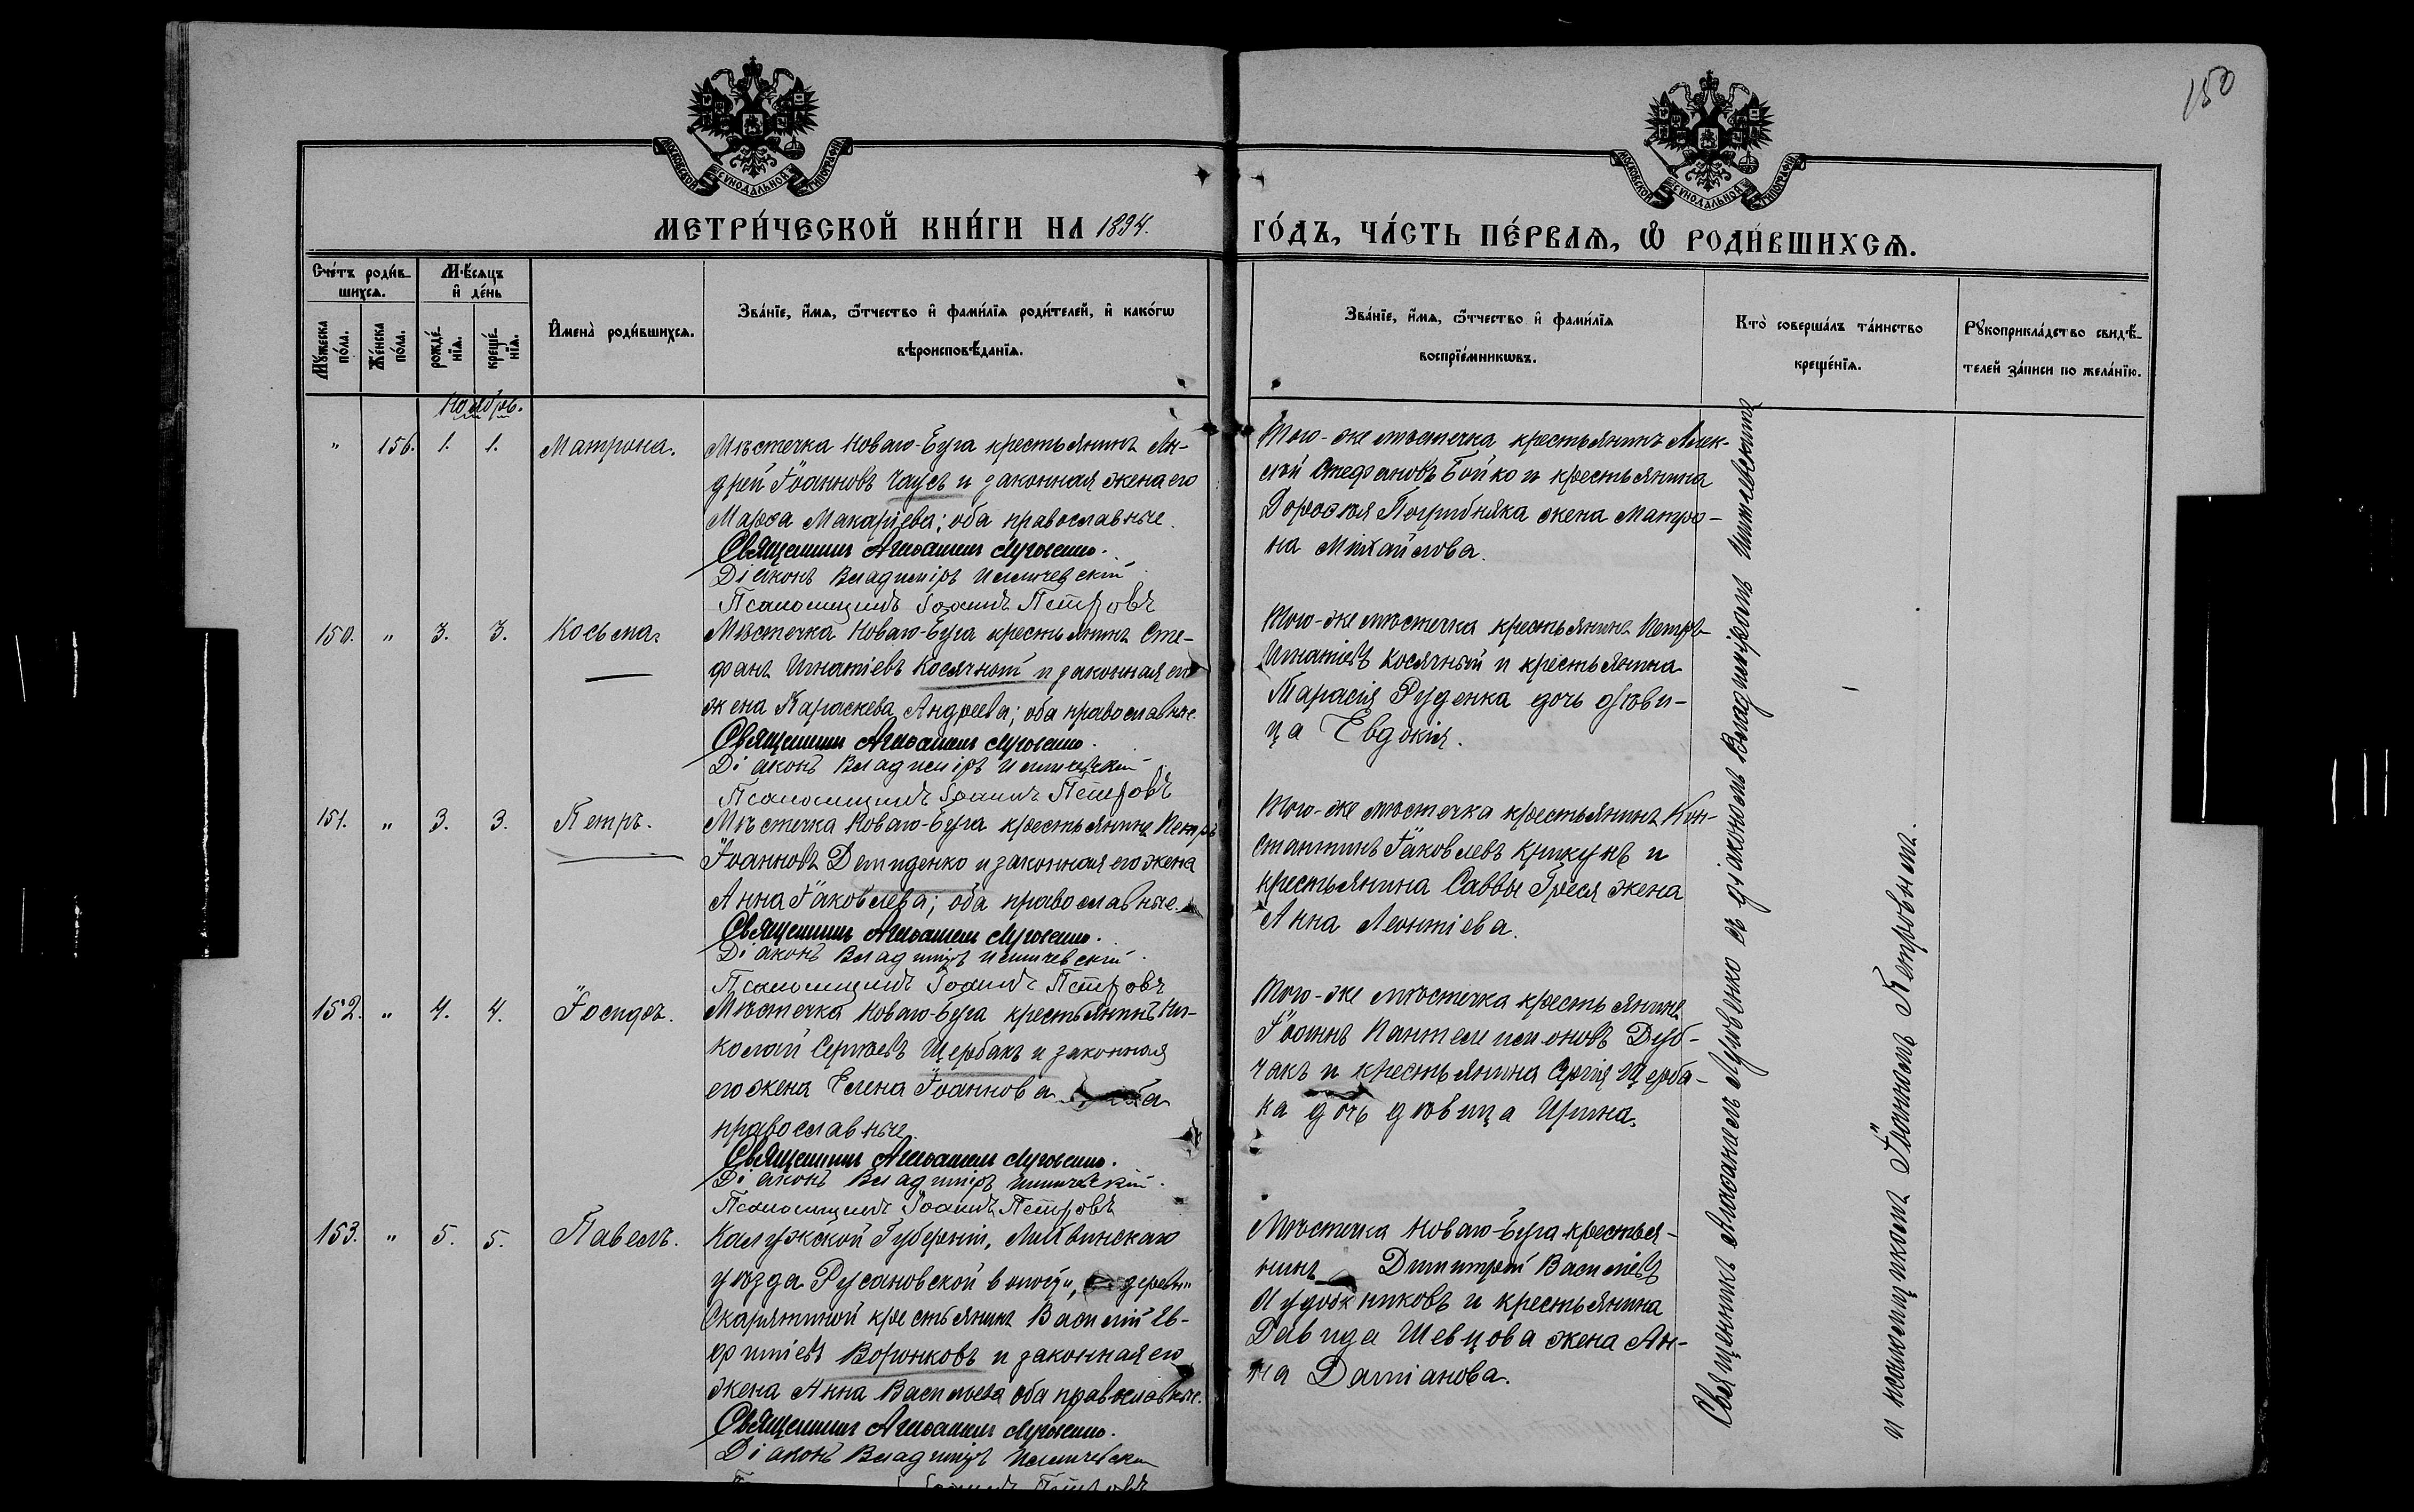 150
МОСКОВСКОЙ СѴНОДАЛЬНОЙ ТИПОГРАФІИ
МОСКОВСКОЙ СѴНОДАЛЬНОЙ ТИПОГРАФІИ
МЕТРИ́ЧЕСКОЙ КНИ́ГИ НА 1894.
ГО́ДЪ, ЧА́СТЬ ПЕ́РВАЯ, Ѿ РОДИ́ВШИХСЯ.
Сче́тъ роди́в-
шихся.
Мꙋ́жеска
по́ла.
Же́нска
по́ла.
Мѣ́сяцъ
и де́нь
рожде́-
нїя.
креще́-
нїя.
Имена̀ роди́вшихся.
Зва́нїе, и́мя, ѿ́тчество и фами́лїя роди́телей, и како́гѡ
вѣроисповѣ́данїя.
Зва́нїе, и́мя, ѿ́тчество и фами́лїя
воспрїе́мникѡвъ.
Кто̀ соверша́лъ та́инство
креще́нїя.
Рꙋкоприкла́дство свидѣ́-
телей за́писи по жела́нїю.
Ноябрь.
" 156. 1. 1. Матрона.
Мѣстечка Новаго-Буга крестьянинъ Ан-
дрей Іоанновъ Чаусъ и законная жена его
Марѳа Макаріева; оба православные.
Священникъ Аѳанасій Луговенко.
Діаконъ Владиміръ Иличевскій
Псаломщикъ Іоаннъ Петровъ
Того-же мѣстечка крестьянинъ Алек-
сѣй Стефановъ Бойко и крестьянина
Дороѳея Погрибняка жена Матро-
на Михайлова.
150. " 3. 3. Косьма.
Мѣстечка Новаго-Буга крестьянинъ Сте-
фанъ Игнатіевъ Косячный и законная его
жена Параскева Андреева; оба православные.
Священникъ Аѳанасій Луговенко.
Діаконъ Владиміръ Иличевскій
Псаломщикъ Іоаннъ Петровъ
Того-же мѣстечка крестьянинъ Петръ
Игнатіевъ Косячный и крестьянина
Тарасія Руденка дочь дѣви-
ца Евдокія.
151. " 3. 3. Петръ.
Мѣстечка Новаго-Буга крестьянинъ Петръ
Іоанновъ Демиденко и законная его жена
Анна Іаковлева; оба православные.
Священникъ Аѳанасій Луговенко.
Діаконъ Владиміръ Иличевскій
Псаломщикъ Іоаннъ Петровъ
Того-же мѣстечка крестьянинъ Кон-
стантинъ Іаковлевъ Крикунъ и
крестьянина Саввы Грѣся жена
Анна Леонтіева.
152. " 4. 4. Іосифъ.
Мѣстечка Новаго-Буга крестьянинъ Ни-
колай Сергѣевъ Щербакъ и законная
его жена Елена Іоаннова оба
православные.
Священникъ Аѳанасій Луговенко.
Діаконъ Владиміръ Иличевскій
Псаломщикъ Іоаннъ Петровъ
Того-же мѣстечка крестьянинъ
Іоаннъ Пантелеимоновъ Дуб-
чакъ и крестьянина Сергія Щерба-
ка дочь дѣвица Ирина.
153. " 5. 5. Павелъ.
Калужской Губерніи, Лихвинскаго
уѣзда Русановской волости, деревни
Скарятиной крестьянинъ Василій Ев-
фиміевъ Воронковъ и законная его
жена Анна Васильева оба православные.
Священникъ Аѳанасій Луговенко.
Діаконъ Владиміръ Иличевскій
Іоаннъ Петровъ
Мѣстечка Новаго-Буга крестья-
нинъ Димитрій Василіевъ
Художниковъ и крестьянина
Давида Шевцова жена Ан-
на Даміанова.
Священникъ Аѳанасій Луговенко съ діакономъ Владиміромъ Иличевскимъ
и псаломщикомъ Іоанномъ Петровымъ.